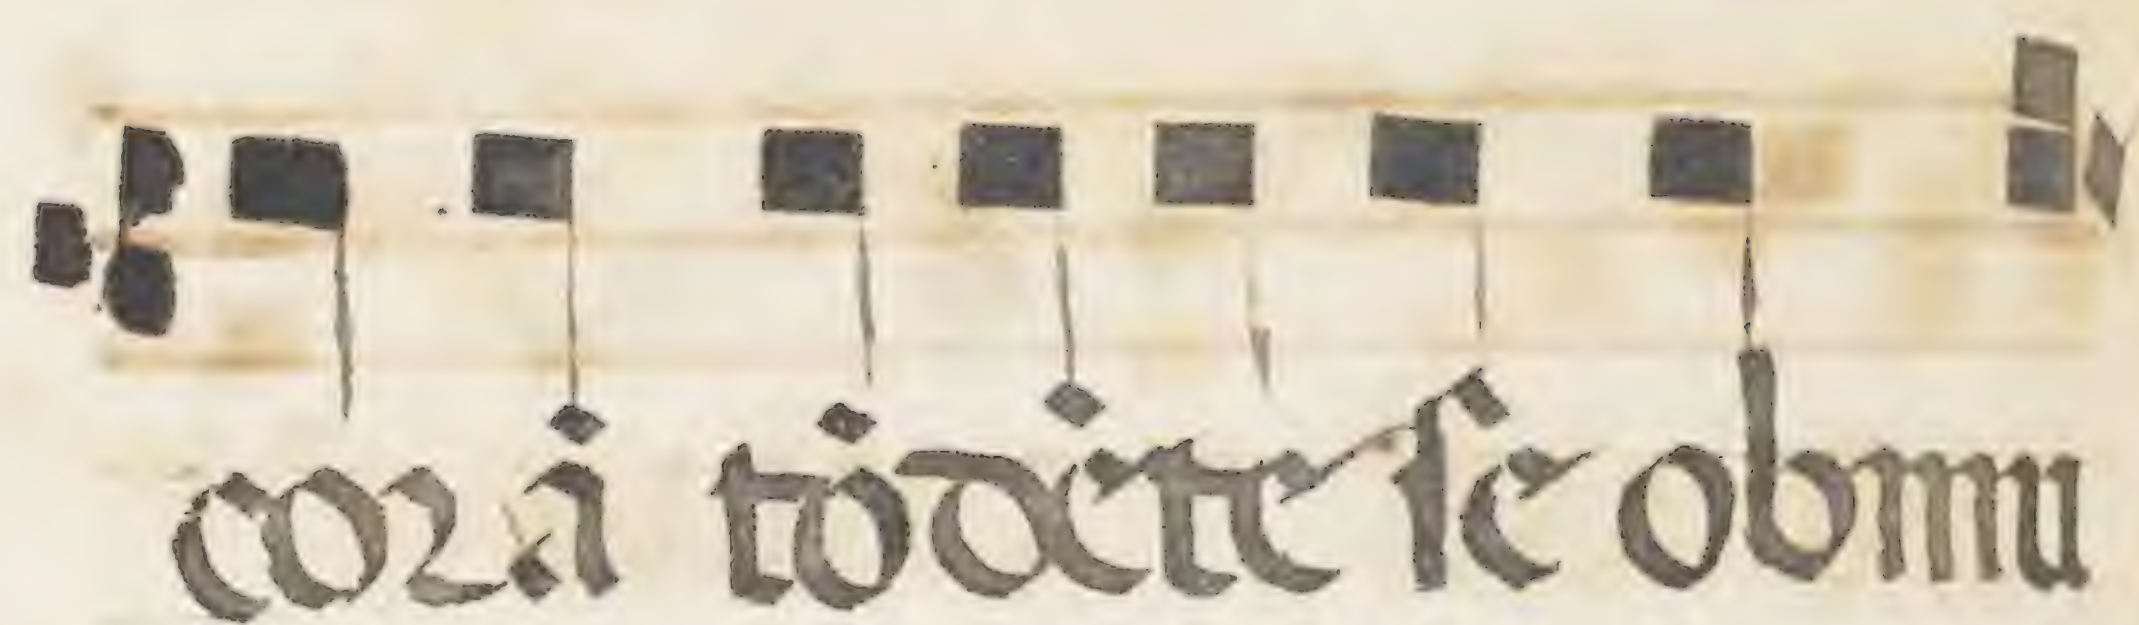 corā tōdēte se obmu